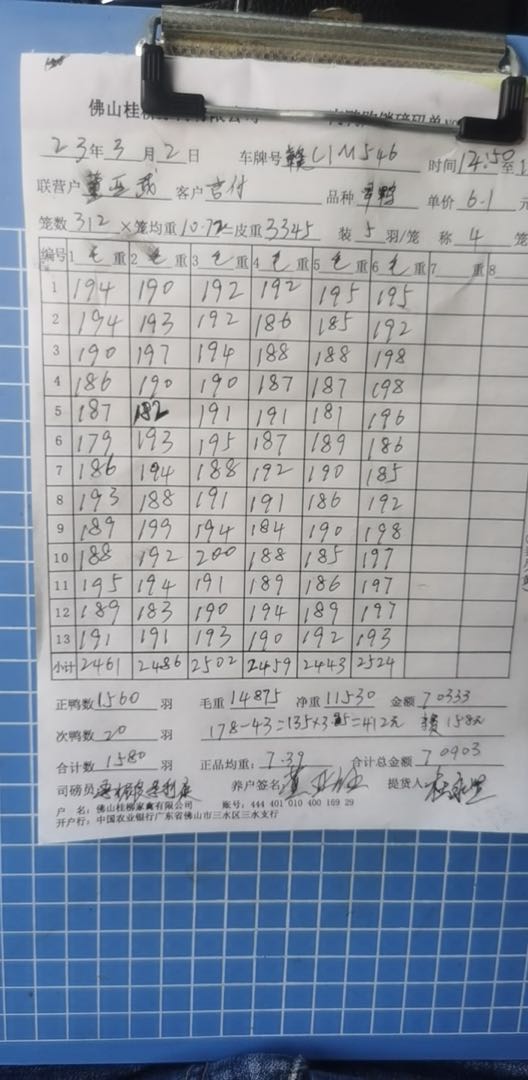 佛山桂柳
23年3月2日 车牌号 赣C1M546 时间 12:50 至
联营户 董亚武 客户 吉付 品种 单价 6.1 元
笼数 312 ×笼均重 10.72 =皮重 3345 装 5 羽/笼 称 4 笼
编号 1 毛重 2 毛重 3 毛重 4 毛重 5 毛重 6 毛重 7 重 8
1 194 190 192 192 195 195
2 194 193 192 186 185 192
3 190 197 194 188 188 198
4 186 190 190 187 187 198
5 187 182 191 191 181 196
6 179 193 195 187 189 186
7 186 194 188 192 190 185
8 193 188 191 191 186 192
9 189 199 194 184 190 198
10 188 192 200 188 185 197
11 195 194 191 189 186 197
12 189 183 190 194 189 197
13 191 191 193 190 192 193
小计 2461 2486 2502 2459 2443 2524
正鸭数 1560 羽 毛重 14875 净重 11530 金额 70333
次鸭数 20 羽 178-43=135×3 =412元 158元
合计数 1580 羽 正品均重: 7.39 合计总金额 70903
司磅员 养户签名 董亚武 提货人
户 名: 佛山桂柳家禽有限公司 账号: 444 401 010 400 169 29
开户行: 中国农业银行广东省佛山市三水区三水支行